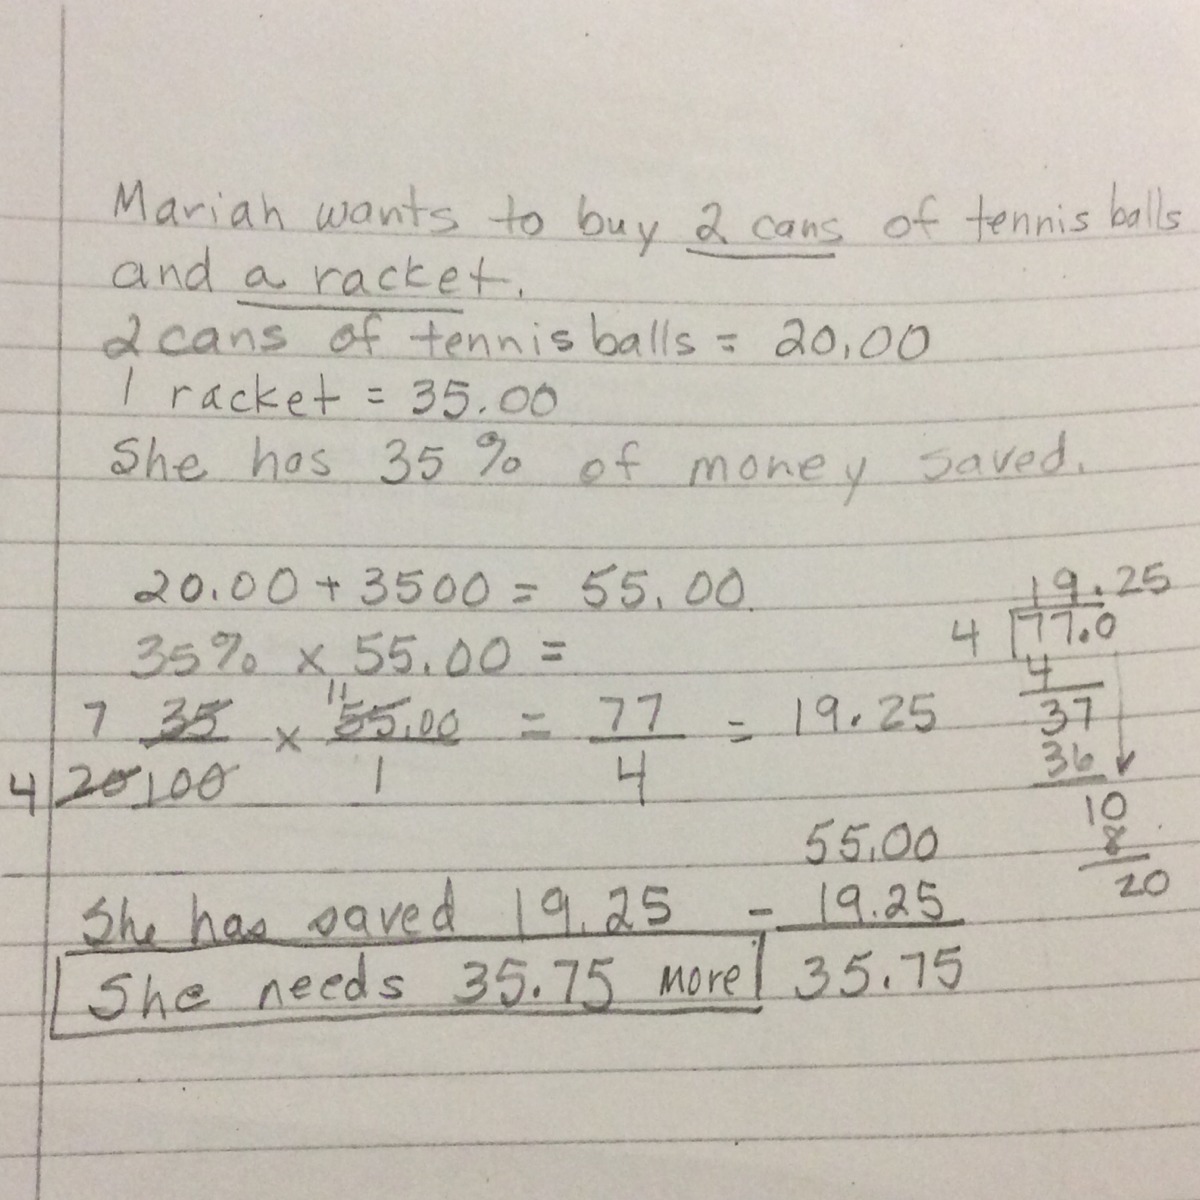 Mariah wants to buy 2 cans of tennis balls
and a racket.
2 cans of tennis balls = 20.00
1 racket = 35.00
She has 35% of money saved.
20.00 + 3500 = 55.00
35% x 55.00 =
7 35 x 11 55.00 = 77 = 19.25
4 20 100 1 4
19.25
4 77.0
4
37
36
10
8
20
55.00
She has saved 19.25 - 19.25
She needs 35.75 more 35.75